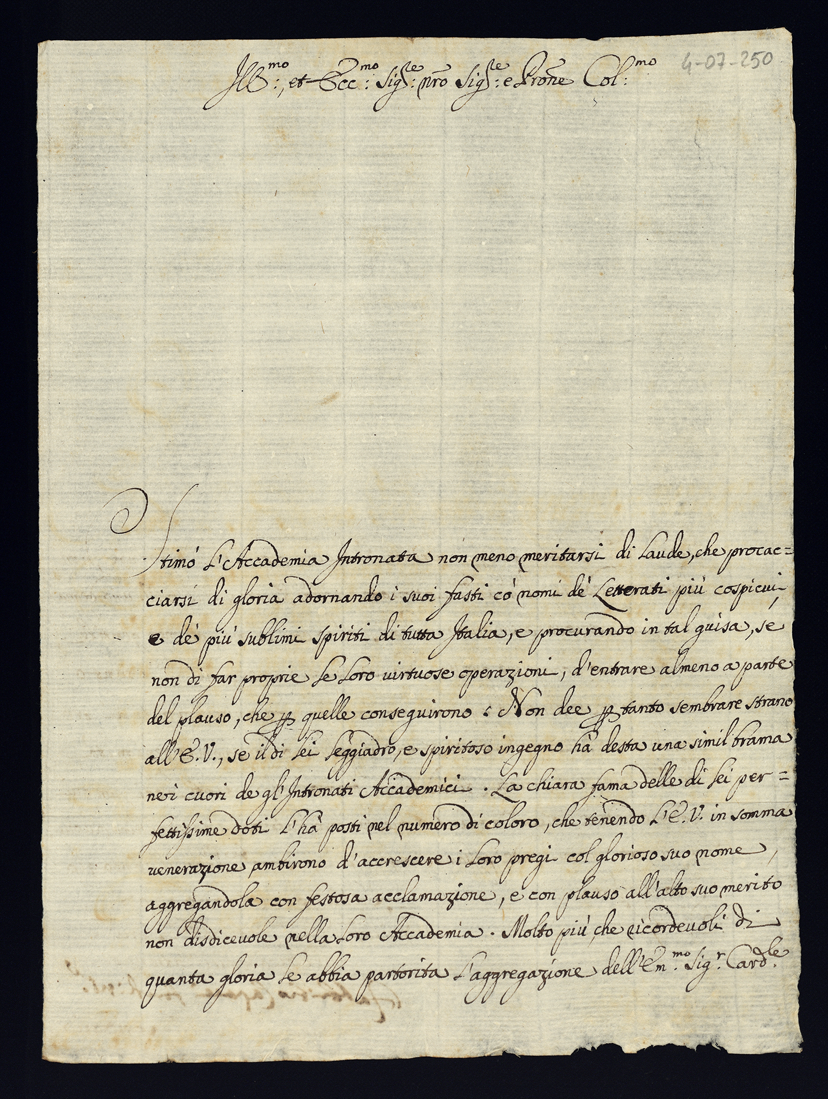 Ill.mo, et Ecc.mo Sig.re nro Sig.re e Prone Col.mo
4-07-250
Stimò l'Accademia Intronata non meno meritarsi di laude, che procac=
ciarsi di gloria adornando i suoi fasti co' nomi de' Letterati più cospicui,
e de' più sublimi spiriti di tutta Italia, e procurando in tal guisa, se
non di far proprie le loro virtuose operazioni, d'entrare almeno a parte
del plauso, che p quelle conseguirono: Non dee p tanto sembrare strano
all'E.V., se il di lei leggiadro, e spiritoso ingegno hà desta una simil brama
nei cuori de gl'Intronati Accademici. La chiara fama delle di lei per=
fettissime doti l'hà posti nel numero di coloro, che tenendo l'E.V. in somma
venerazione, ambirono d'accrescere i loro pregi col glorioso suo nome,
aggregandola con festosa acclamazione, e con plauso all'alto suo merito
non disdicevole nella loro Accademia. Molto più, che ricordevoli di
quanta gloria le abbia partorita l'aggregazione dell'Em.mo Sig.r Card.le